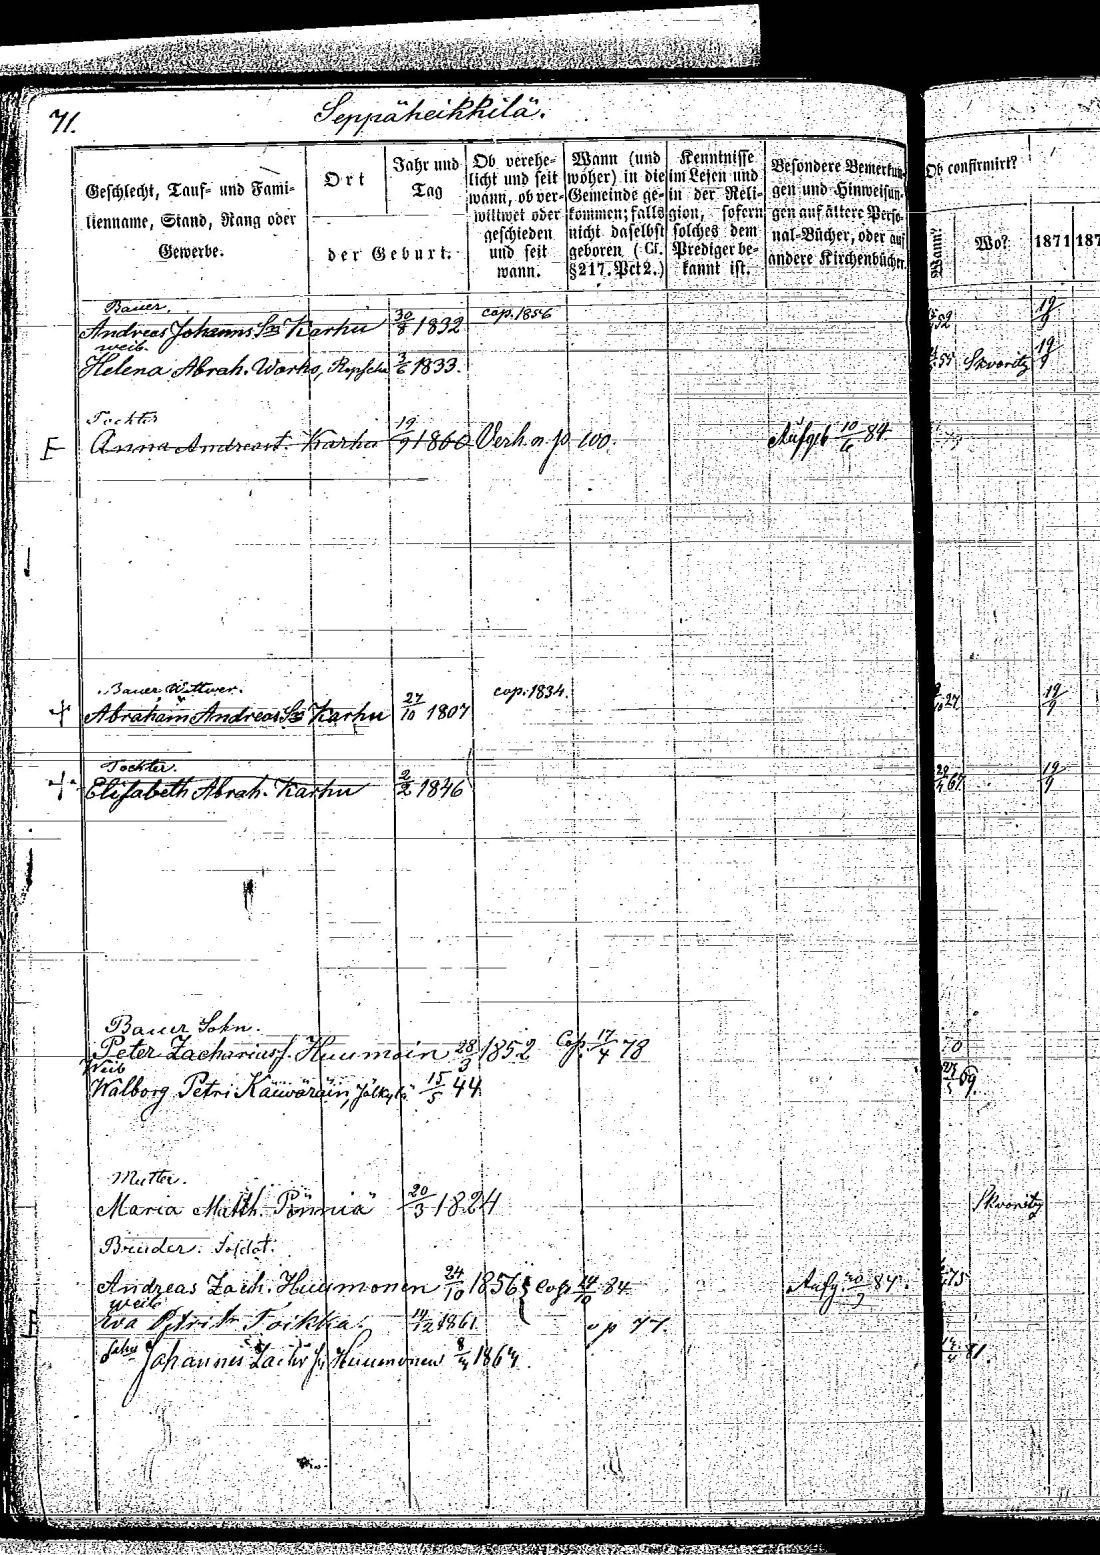 71.
Seppäheikkilä.
Geschlecht, Tauf- und Fami-
lienname, Stand, Rang oder
Gewerbe.
Ort
Jahr und
Tag
der Geburt.
Ob verehe-
licht und seit
wann, ob ver-
wittwet oder
geschieden
und seit
wann.
Wann (und
woher) in die
Gemeinde ge-
kommen; falls
nicht daselbst
geboren (Cf.
§217. Pct 2.)
Kenntnisse
im Lesen und
in der Reli-
gion, sofern
solches dem
Prediger be-
kannt ist.
Besondere Bemerkun-
gen und Hinweisun-
gen auf ältere Perso-
nal-Bücher, oder auf
andere Kirchenbücher.
Ob confirmirt?
Wann?
Wo?
1871
187
Bauer.
Andreas Johanns Karhu 30/8 1832 cop. 1856 19/9
weib.
Helena Abrah. Warho, 3/6 1833. Skvoritz 19/9
Tochter
Anna Andreast. Karhu 19/9 1860 Verh. n. p. 100. Aufgeb 10/6 84.
Bauer Wittwer. cop. 1834.
Abraham Andreas Karhu 27/10 1807 19/9
Tochter.
Elisabeth Abrah. Karhu 2/2 1846 19/9
Bauer Sohn.
Peter Zacharias Huumoin 28/3 1852 Cop. 17/4 78
Weib
Walborg Petri Käiwäräin, 15/5 44 69.
Mutter.
Maria Matth. Pönniä 20/3 1824 Skvoritz
Bruder. Soldat.
Andreas Zach. Huumonen 24/10 1856 Cop 14/10 84 Aufg. 84. 75
weib
Eva Petri tr Toikka. 14/12 1861. op 77.
Sohn Johannes Zachr Huumonen 1864. 81.